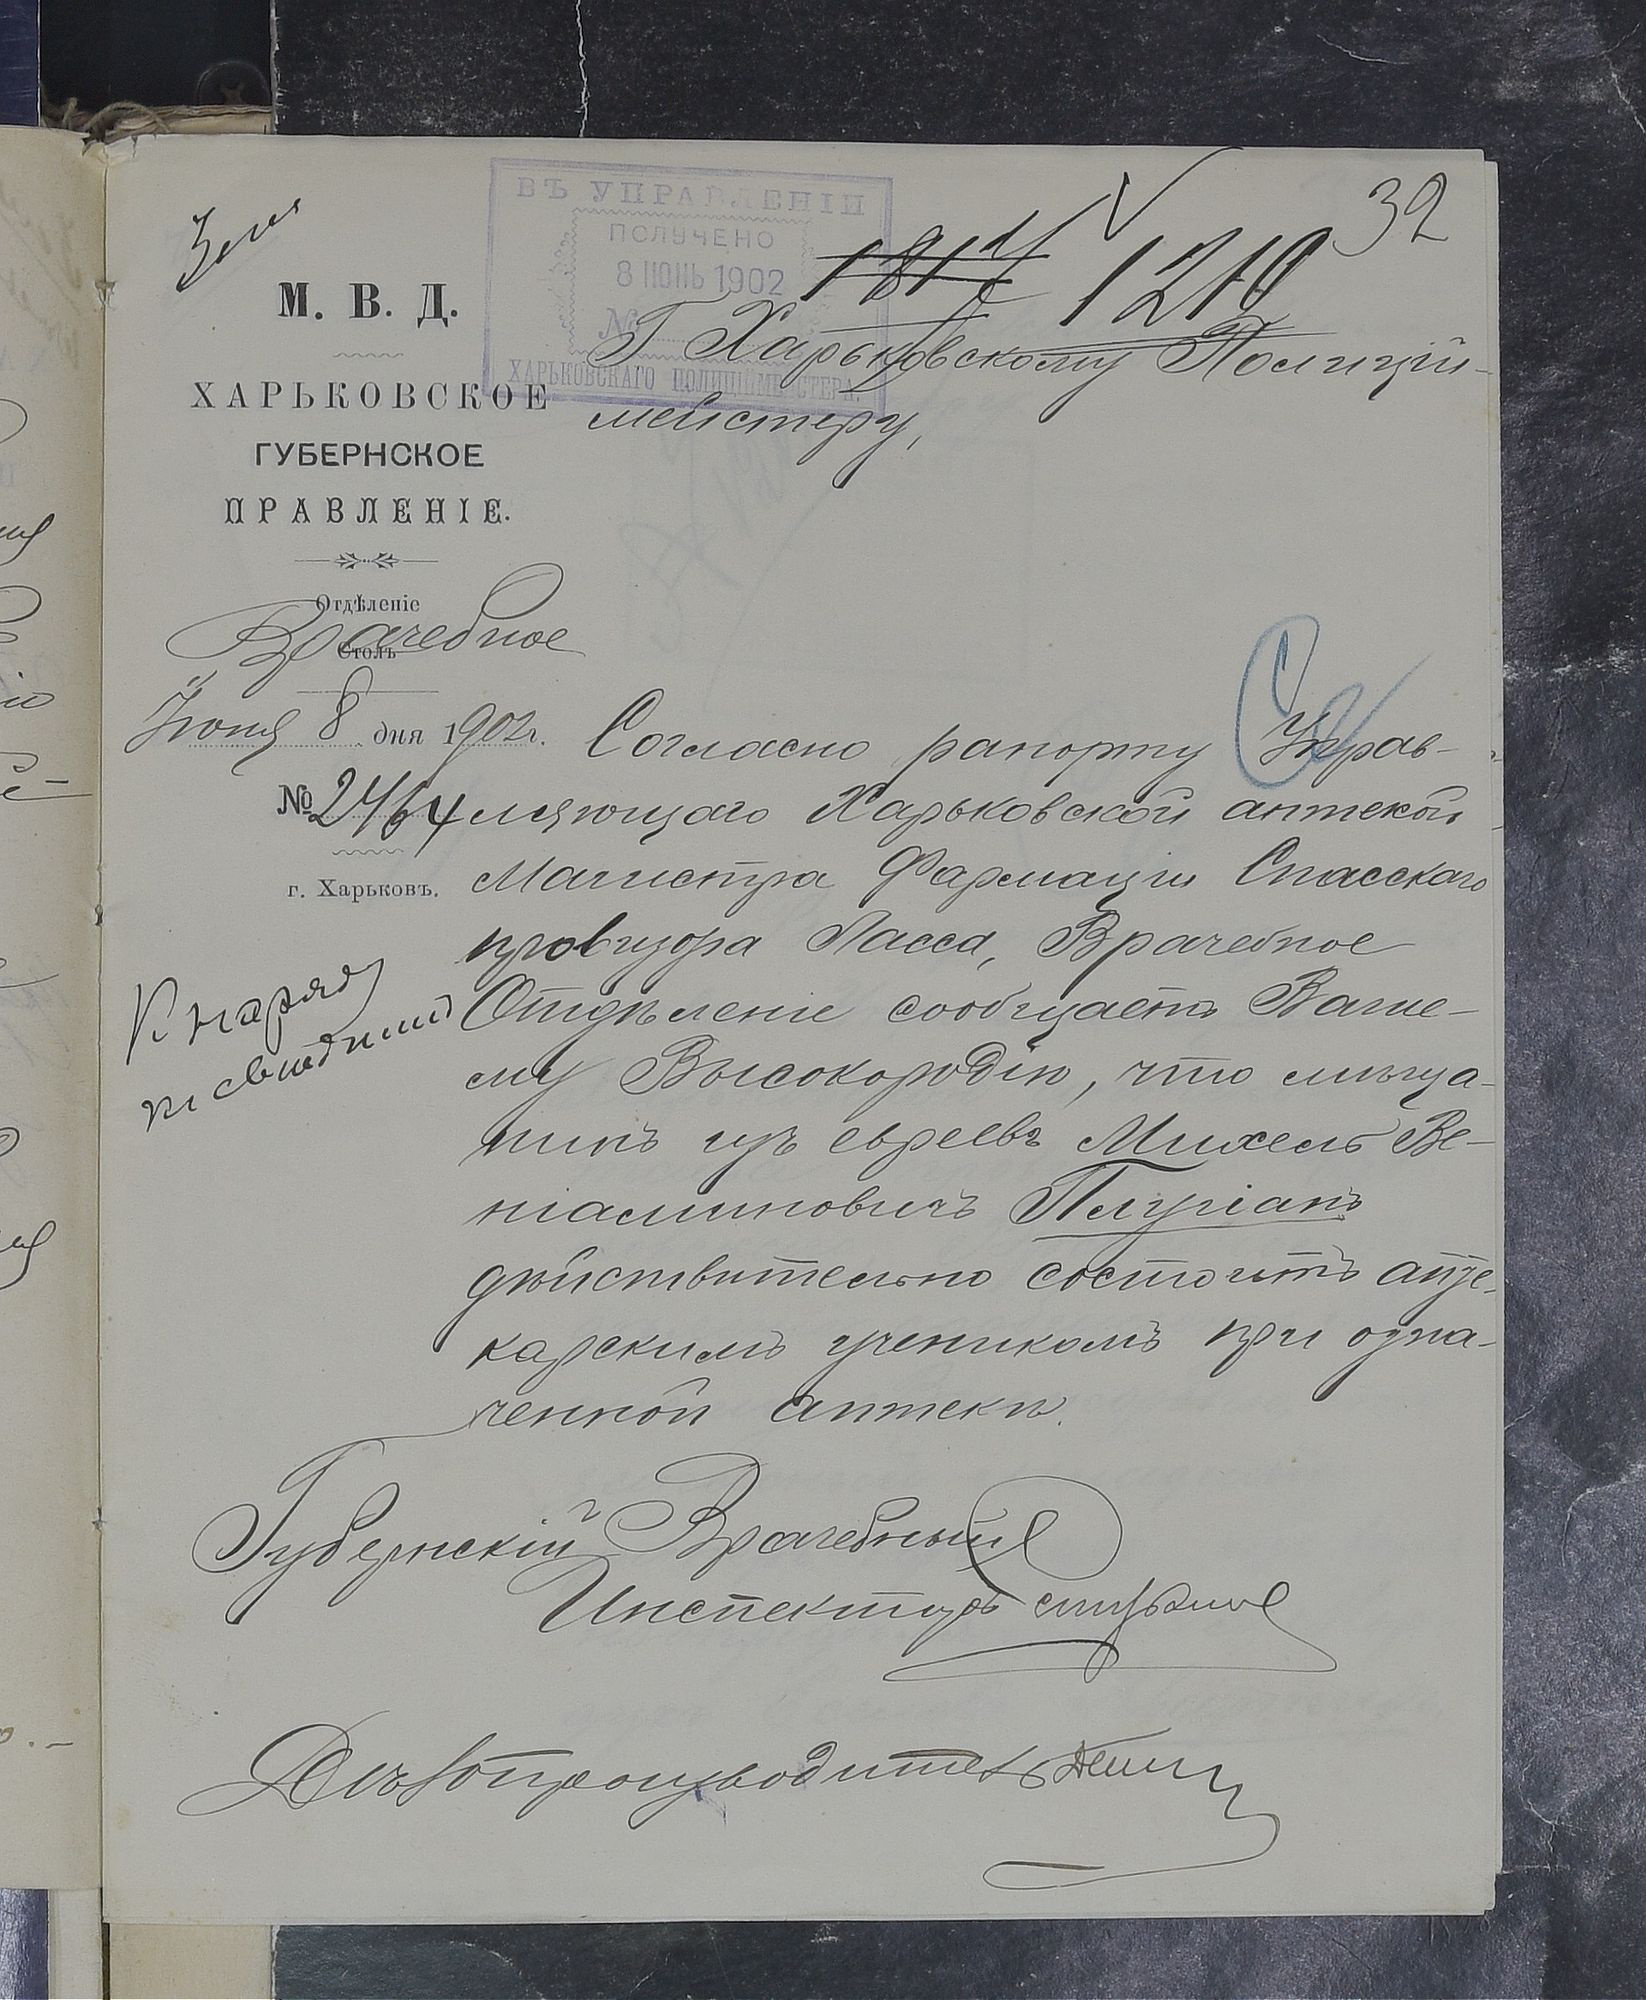 32
ВЪ УПРАВЛЕНІИ
ПОЛУЧЕНО
8 ІЮНЬ 1902
№
ХАРЬКОВСКАГО ПОЛИЦІЙМЕЙСТЕРА.
1210
М. В. Д.
ХАРЬКОВСКОЕ
ГУБЕРНСКОЕ
ПРАВЛЕНІЕ.
Отдѣленіе
Врачебное
Столъ
Іюня 8 дня 1902 г.
№ 2464
г. Харьковъ.
К наряду
Г Харьковскому Полицій-
мейстеру,
Согласно рапорту Управ-
ляющаго Харьковской аптекой
Магистра Фармаціи Спасскаго
провизора Ласса, Врачебное
Отдѣленіе сообщаетъ Ваше-
му Высокородію, что мѣща-
нинъ изъ евреевъ Михель Ве-
ніаминовичъ Плуріанъ
дѣйствительно состоитъ апте-
карскимъ ученикомъ при озна-
ченной аптекѣ.
Губернскій Врачебный
Инспекторъ
Дѣлопроизводитель